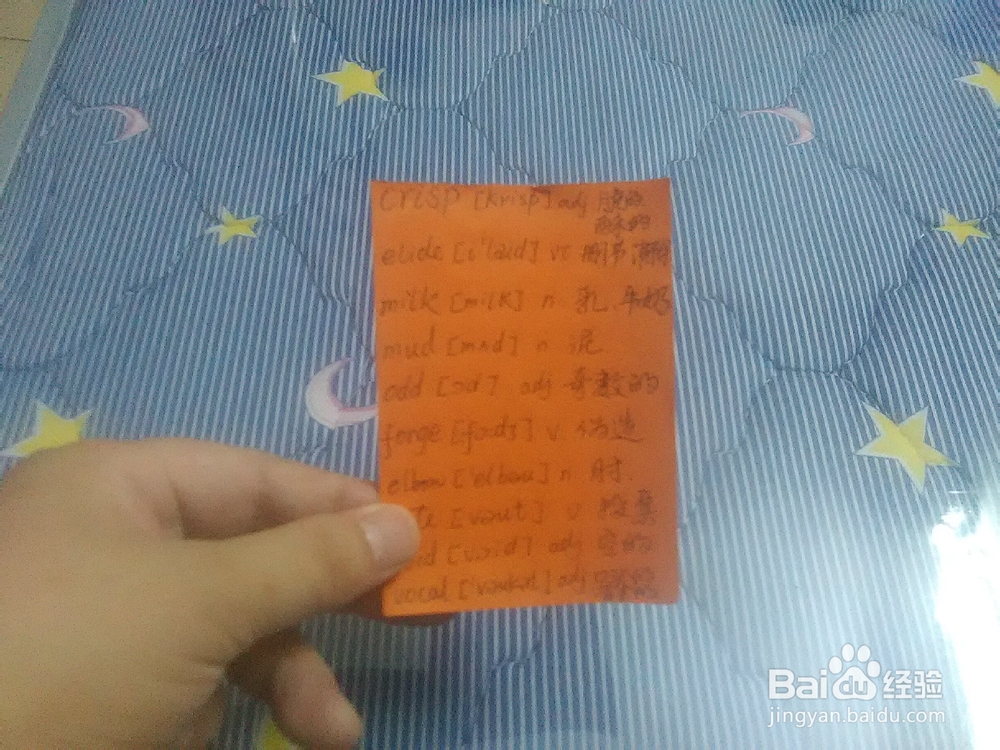 crisp [krisp] adj 脆的
酥的
elide [i'laid] vt
milk [milk] n 乳、牛奶
mud [mʌd] n 泥.
odd [ɔd] adj 奇数的
forge [fɔ:dʒ] v 伪造
elbow ['elbəu] n 肘.
te [vəut] v 投票
id [vɔid] adj 空的
vocal ['vəukəl] adj
Baidu 经验
jingyan.baidu.com